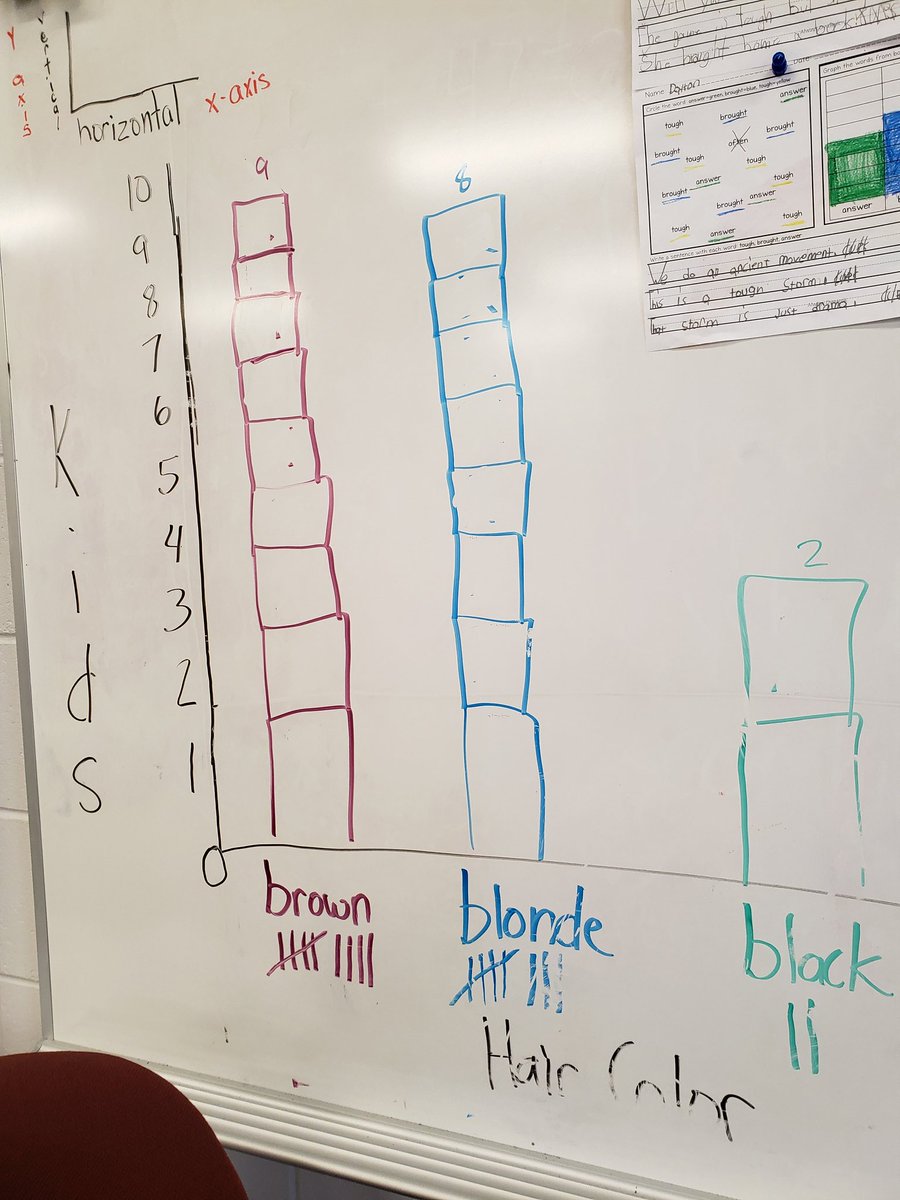 y axis
vertical
horizontal
x-axis
10
9
8
7
6
5
4
3
2
1
0
Kids
9
8
2
brown
blonde
black
Hair Color
She bought home a
Name Dalton
Circle the word: answer=green, brought=blue, tough=yellow
answer
tough
brought
often
brought
brought
tough
tough
answer
tough
brought
answer
brought
tough
answer
tough
Graph the words from
answer
Write a sentence with each word: tough, brought, answer
We do an ancient movement,
This is a tough storm,
storm is just drama,